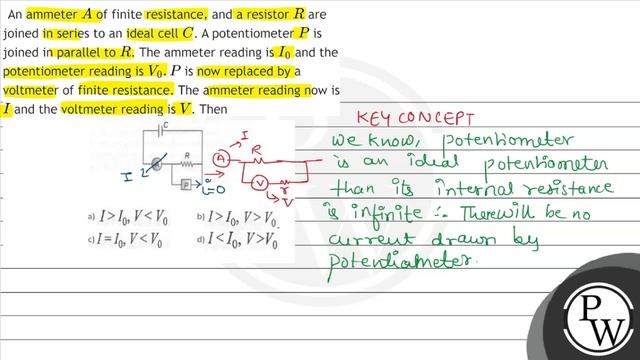 An ammeter A of finite resistance, and a resistor R are
joined in series to an ideal cell C. A potentiometer P is
joined in parallel to R. The ammeter reading is I₀ and the
potentiometer reading is V₀. P is now replaced by a
voltmeter of finite resistance. The ammeter reading now is
I and the voltmeter reading is V. Then
KEY CONCEPT
We know, potentiometer
is an ideal potentiometer
than its internal resistance
is infinite ∴ There will be no
current drawn by
potentiameter.
C
R
P
I
i=0
A
I
R
V
r
V
a) I > I₀, V < V₀
b) I > I₀, V > V₀.
c) I = I₀, V < V₀
d) I < I₀, V > V₀
P
W